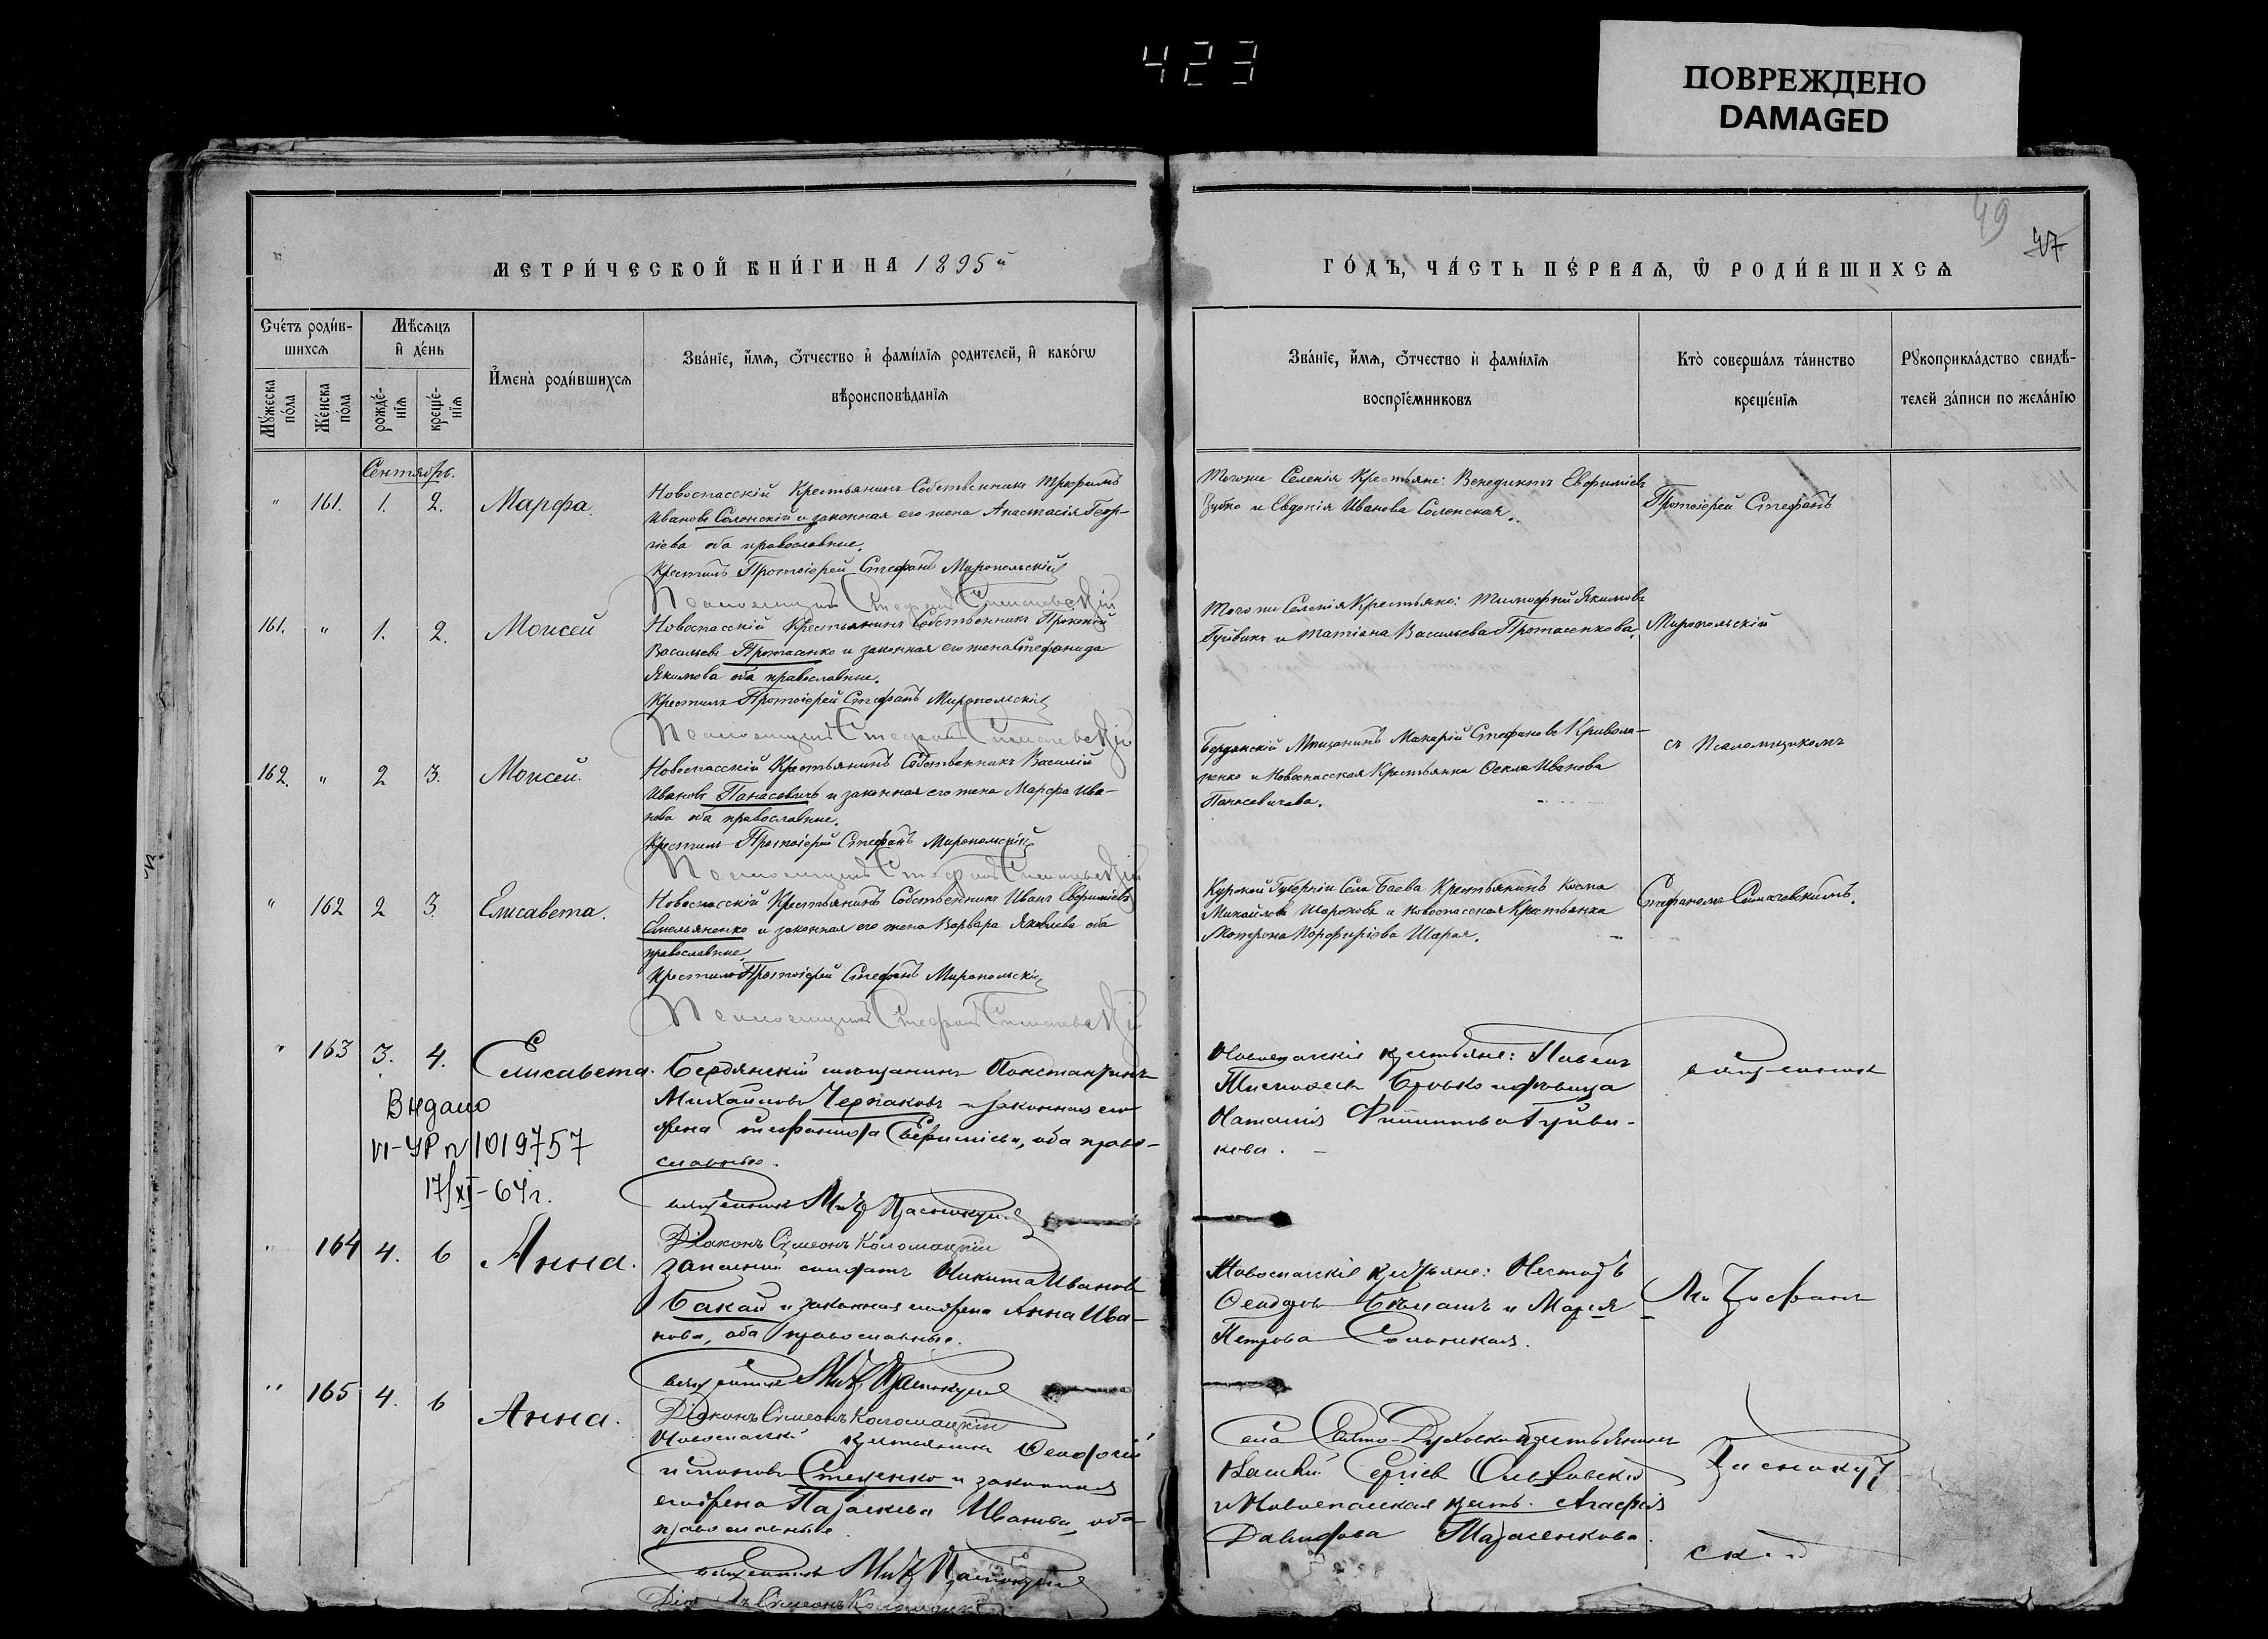 423
ПОВРЕЖДЕНО
DAMAGED
49
47
МЕТРИ́ЧЕСКОЙ КНИ́ГИ НА 1895й
ГО́ДЪ, ЧА́СТЬ ПЕ́РВАѦ, Ѡ РОДИ́ВШИХСѦ
Сче́тъ роди́в-
шихсѧ
Мѣ́сѧцъ
и҆ де́нь
Му́жеска по́ла
Же́нска по́ла
рожде́-
нїѧ
креще́-
нїѧ
И҆мена̀ роди́вшихсѧ
Зва́нїе, и҆́мѧ, ѻ҆́тчество и҆ фами́лїѧ родителей, и҆ како́гѡ
вѣроисповѣ́данїѧ
Зва́нїе, и҆́мѧ, ѻ҆́тчество и҆ фами́лїѧ
воспрїе́мниковъ
Кто̀ соверша́лъ та́инство
креще́нїѧ
Рꙋкоприкла́дство свидѣ́-
телей за́писи по жела́нїю
Сентябрь.
" 161. 1. 2. Марфа.
Новоспасскій Крестьянинъ Собственникъ Трофимъ
Ивановъ Солонскій и законная его жена Анастасія Геор-
гіева оба православные.
Крестилъ Протоіерей Стефанъ Миропольскій
Псаломщикъ Стефанъ Симачевскій
Тогоже Селенія Крестьяне: Венедиктъ Евфиміевъ
Зубко и Евдокія Иванова Солонская.
Протоіерей Стефанъ
161. " 1. 2. Моисей
Новоспасскій Крестьянинъ Собственникъ Прокопій
Васильевъ Протасенко и законная его жена Стефанида
Якимова оба православные.
Крестилъ Протоіерей Стефанъ Миропольскій
Псаломщикъ Стефанъ Симачевскій
Того же Селенія Крестьяне: Тимофей Якимовъ
Гуйвикъ и Татіана Васильева Протасенкова.
Миропольскій
162. " 2 3. Моисей.
Новоспасскій Крестьянинъ Собственникъ Василій
Ивановъ Панасевичъ и законная его жена Марфа Ива-
нова оба православные.
Крестилъ Протоіерей Стефанъ Миропольскій
Псаломщикъ Стефанъ Симачевскій
Бердянскій Мѣщанинъ Макарій Стефановъ Кривола-
пенко и Новоспасская Крестьянка Ѳекла Иванова
Панасевичева.
съ Псаломщикомъ
" 162 2 3. Елисавета.
Новоспасскій Крестьянинъ Собственникъ Иванъ Евфиміевъ
Емельяненко и законная его жена Варвара Яковлева оба
православные.
Крестилъ Протоіерей Стефанъ Миропольскій
Псаломщикъ Стефанъ Симачевскій
Курской Губерніи Села Баева Крестьянинъ Косма
Михайловъ Шороховъ и Новоспасская Крестьянка
Матрона Порфиріева Шарая.
Стефаномъ Симачевскимъ.
" 163 3. 4. Елисавета.
Видано
VI-УР № 1019757
17/XI-64г.
Бердянскій мѣщанинъ Константинъ
Михайловъ Черпаковъ и законная его
жена Стефанида Евфиміева, оба право-
славные.
священникъ
Діаконъ Сѵмеонъ Коломацкій
Новоспасскіе крестьяне: Павелъ
Тимофеевъ и дѣвица
Наталія Филиппова Гуйви-
кова.
священникъ
" 164 4. 6 Анна.
Запасный солдатъ Никита Ивановъ
Бакай и законная его жена Анна Ива-
нова, оба православные.
священникъ
Діаконъ Сѵмеонъ Коломацкій
Новоспасскіе крестьяне: Несторъ
Ѳеодоровъ и Марія
Петрова Солонская.
" 165 4. 6 Анна.
Новоспасскій крестьянинъ Ѳеодосій
Стеценко и законная
его жена Параскева Иванова, оба
православные.
священникъ
Діаконъ Сѵмеонъ Коломацкій
села Свято-Духовки крестьянинъ
Василій Сергіевъ Ольховскій
и Новоспасская крест. Агафія
Давидова